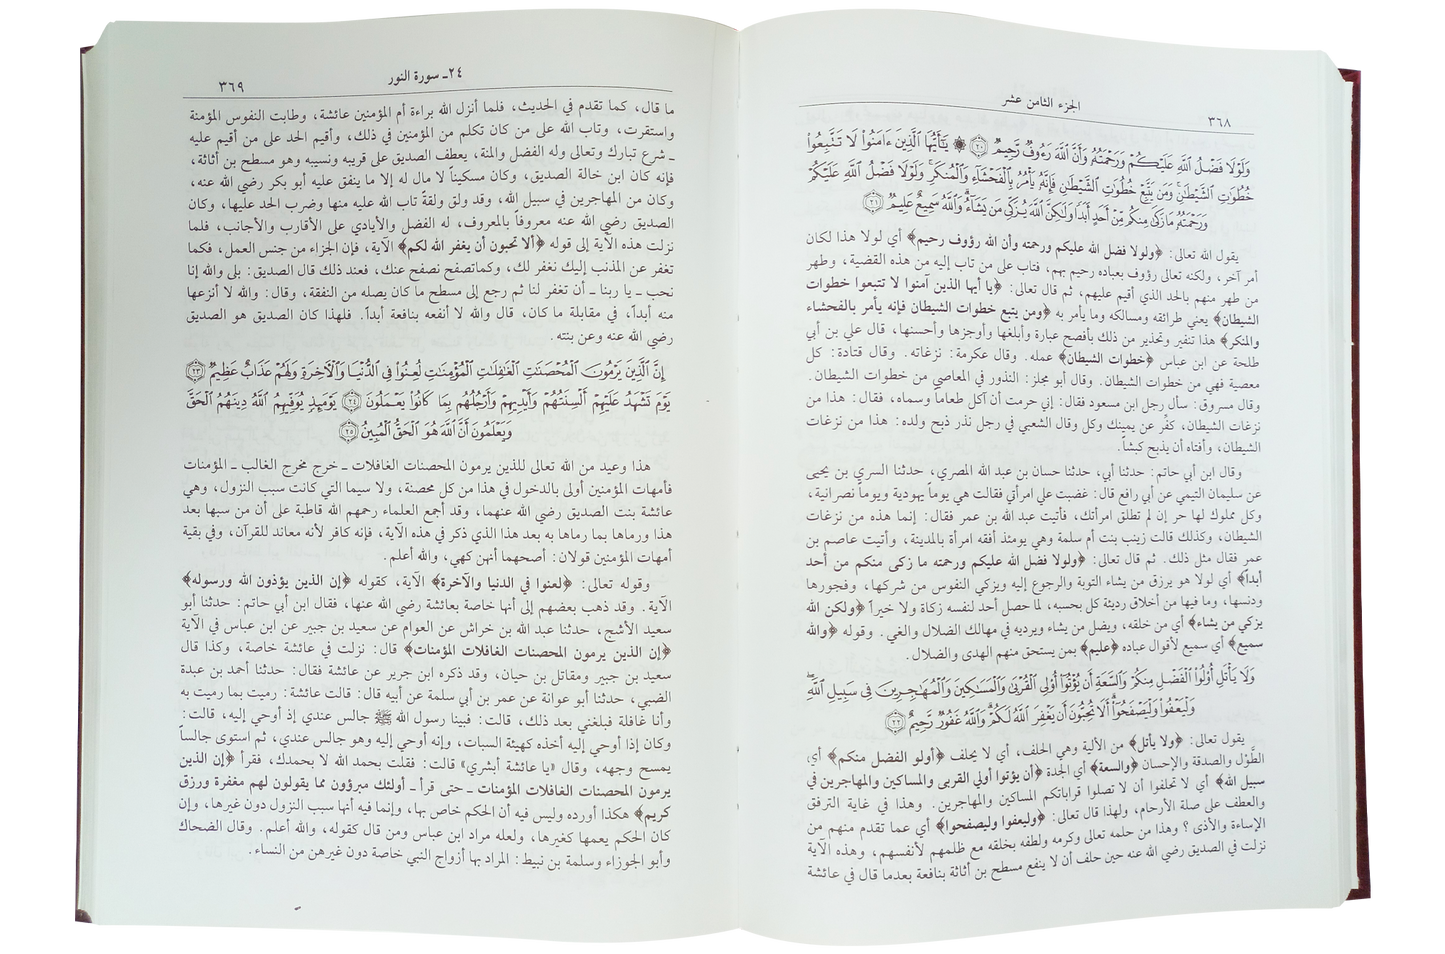 الجزء الثامن عشر
٣٦٨
وَلَوْلَا فَضْلُ ٱللَّهِ عَلَيْكُمْ وَرَحْمَتُهُۥ وَأَنَّ ٱللَّهَ رَءُوفٌ رَّحِيمٌ ۝٢٠ ۞ يَٰٓأَيُّهَا ٱلَّذِينَ ءَامَنُوا۟ لَا تَتَّبِعُوا۟
خُطُوَٰتِ ٱلشَّيْطَٰنِ ۚ وَمَن يَتَّبِعْ خُطُوَٰتِ ٱلشَّيْطَٰنِ فَإِنَّهُۥ يَأْمُرُ بِٱلْفَحْشَآءِ وَٱلْمُنكَرِ ۚ وَلَوْلَا فَضْلُ ٱللَّهِ عَلَيْكُمْ
وَرَحْمَتُهُۥ مَا زَكَىٰ مِنكُم مِّنْ أَحَدٍ أَبَدًا وَلَٰكِنَّ ٱللَّهَ يُزَكِّى مَن يَشَآءُ ۗ وَٱللَّهُ سَمِيعٌ عَلِيمٌ ۝٢١
يقول الله تعالى: ﴿ولولا فضل الله عليكم ورحمته وأن الله رؤوف رحيم﴾ أي لولا هذا لكان
أمر آخر، ولكنه تعالى رؤوف بعباده رحيم بهم، فتاب على من تاب إليه من هذه القضية، وطهر
من طهر منهم بالحد الذي أقيم عليهم، ثم قال تعالى: ﴿يا أيها الذين آمنوا لا تتبعوا خطوات
الشيطان﴾ يعني طرائقه ومسالكه وما يأمر به ﴿ومن يتبع خطوات الشيطان فإنه يأمر بالفحشاء
والمنكر﴾ هذا تنفير وتحذير من ذلك بأفصح عبارة وأبلغها وأوجزها وأحسنها، قال علي بن أبي
طلحة عن ابن عباس ﴿خطوات الشيطان﴾ عمله. وقال عكرمة: نزغاته. وقال قتادة: كل
معصية فهي من خطوات الشيطان. وقال أبو مجلز: النذور في المعاصي من خطوات الشيطان.
وقال مسروق: سأل رجل ابن مسعود فقال: إني حرمت أن آكل طعاماً وسماه، فقال: هذا من
نزغات الشيطان، كفِّر عن يمينك وكل وقال الشعبي في رجل نذر ذبح ولده: هذا من نزغات
الشيطان، وأفتاه أن يذبح كبشاً.
وقال ابن أبي حاتم: حدثنا أبي، حدثنا حسان بن عبد الله المصري، حدثنا السري بن يحيى
عن سليمان التيمي عن أبي رافع قال: غضبت علي امرأتي فقالت هي يوماً يهودية ويوماً نصرانية،
وكل مملوك لها حر إن لم تطلق امرأتك، فأتيت عبد الله بن عمر فقال: إنما هذه من نزغات
الشيطان، وكذلك قالت زينب بنت أم سلمة وهي يومئذ أفقه امرأة بالمدينة، وأتيت عاصم بن
عمر فقال مثل ذلك. ثم قال تعالى: ﴿ولولا فضل الله عليكم ورحمته ما زكى منكم من أحد
أبداً﴾ أي لولا هو يرزق من يشاء التوبة والرجوع إليه ويزكي النفوس من شركها، وفجورها
ودنسها، وما فيها من أخلاق رديئة كل بحسبه، لما حصل أحد لنفسه زكاة ولا خيراً ﴿ولكن الله
يزكي من يشاء﴾ أي من خلقه، ويضل من يشاء ويرديه في مهالك الضلال والغي. وقوله ﴿والله
سميع﴾ أي سميع لأقوال عباده ﴿عليم﴾ بمن يستحق منهم الهدى والضلال.
وَلَا يَأْتَلِ أُو۟لُوا۟ ٱلْفَضْلِ مِنكُمْ وَٱلسَّعَةِ أَن يُؤْتُوٓا۟ أُو۟لِى ٱلْقُرْبَىٰ وَٱلْمَسَٰكِينَ وَٱلْمُهَٰجِرِينَ فِى سَبِيلِ ٱللَّهِ ۖ
وَلْيَعْفُوا۟ وَلْيَصْفَحُوٓا۟ ۗ أَلَا تُحِبُّونَ أَن يَغْفِرَ ٱللَّهُ لَكُمْ ۗ وَٱللَّهُ غَفُورٌ رَّحِيمٌ ۝٢٢
يقول تعالى: ﴿ولا يأتل﴾ من الألية وهي الحلف، أي لا يحلف ﴿أولو الفضل منكم﴾ أي
الطَّوْل والصدقة والإحسان ﴿والسعة﴾ أي الجدة ﴿أن يؤتوا أولي القربى والمساكين والمهاجرين في
سبيل الله﴾ أي لا تحلفوا أن لا تصلوا قراباتكم المساكين والمهاجرين. وهذا في غاية الترفق
والعطف على صلة الأرحام، ولهذا قال تعالى: ﴿وليعفوا وليصفحوا﴾ أي عما تقدم منهم من
الإساءة والأذى؟ وهذا من حلمه تعالى وكرمه ولطفه بخلقه مع ظلمهم لأنفسهم، وهذه الآية
نزلت في الصديق رضي الله عنه حين حلف أن لا ينفع مسطح بن أثاثة بنافعة بعدما قال في عائشة
٢٤ـ سورة النور
٣٦٩
ما قال، كما تقدم في الحديث، فلما أنزل الله براءة أم المؤمنين عائشة، وطابت النفوس المؤمنة
واستقرت، وتاب الله على من كان تكلم من المؤمنين في ذلك، وأقيم الحد على من أقيم عليه
ـ شرع تبارك وتعالى وله الفضل والمنة، يعطف الصديق على قريبه ونسيبه وهو مسطح بن أثاثة،
فإنه كان ابن خالة الصديق، وكان مسكيناً لا مال له إلا ما ينفق عليه أبو بكر رضي الله عنه،
وكان من المهاجرين في سبيل الله، وقد ولق ولقةً تاب الله عليه منها وضرب الحد عليها، وكان
الصديق رضي الله عنه معروفاً بالمعروف، له الفضل والأيادي على الأقارب والأجانب، فلما
نزلت هذه الآية إلى قوله ﴿ألا تحبون أن يغفر الله لكم﴾ الآية، فإن الجزاء من جنس العمل، فكما
تغفر عن المذنب إليك نغفر لك، وكماتصفح نصفح عنك، فعند ذلك قال الصديق: بلى والله إنا
نحب ـ يا ربنا ـ أن تغفر لنا ثم رجع إلى مسطح ما كان يصله من النفقة، وقال: والله لا أنزعها
منه أبداً، في مقابلة ما كان، قال والله لا أنفعه بنافعة أبداً. فلهذا كان الصديق هو الصديق
رضي الله عنه وعن بنته.
إِنَّ ٱلَّذِينَ يَرْمُونَ ٱلْمُحْصَنَٰتِ ٱلْغَٰفِلَٰتِ ٱلْمُؤْمِنَٰتِ لُعِنُوا۟ فِى ٱلدُّنْيَا وَٱلْءَاخِرَةِ وَلَهُمْ عَذَابٌ عَظِيمٌ ۝٢٣
يَوْمَ تَشْهَدُ عَلَيْهِمْ أَلْسِنَتُهُمْ وَأَيْدِيهِمْ وَأَرْجُلُهُم بِمَا كَانُوا۟ يَعْمَلُونَ ۝٢٤ يَوْمَئِذٍ يُوَفِّيهِمُ ٱللَّهُ دِينَهُمُ ٱلْحَقَّ
وَيَعْلَمُونَ أَنَّ ٱللَّهَ هُوَ ٱلْحَقُّ ٱلْمُبِينُ ۝٢٥
هذا وعيد من الله تعالى للذين يرمون المحصنات الغافلات ـ خرج مخرج الغالب ـ المؤمنات
فأمهات المؤمنين أولى بالدخول في هذا من كل محصنة، ولا سيما التي كانت سبب النزول، وهي
عائشة بنت الصديق رضي الله عنهما، وقد أجمع العلماء رحمهم الله قاطبة على أن من سبها بعد
هذا ورماها بما رماها به بعد هذا الذي ذكر في هذه الآية، فإنه كافر لأنه معاند للقرآن، وفي بقية
أمهات المؤمنين قولان: أصحهما أنهن كهي، والله أعلم.
وقوله تعالى: ﴿لعنوا في الدنيا والآخرة﴾ الآية، كقوله ﴿إن الذين يؤذون الله ورسوله﴾
الآية. وقد ذهب بعضهم إلى أنها خاصة بعائشة رضي الله عنها، فقال ابن أبي حاتم: حدثنا أبو
سعيد الأشج، حدثنا عبد الله بن خراش عن العوام عن سعيد بن جبير عن ابن عباس في الآية
﴿إن الذين يرمون المحصنات الغافلات المؤمنات﴾ قال: نزلت في عائشة خاصة، وكذا قال
سعيد بن جبير ومقاتل بن حيان، وقد ذكره ابن جرير عن عائشة فقال: حدثنا أحمد بن عبدة
الضبي، حدثنا أبو عوانة عن عمر بن أبي سلمة عن أبيه قال: قالت عائشة: رميت بما رميت به
وأنا غافلة فبلغني بعد ذلك، قالت: فبينا رسول الله ﷺ جالس عندي إذ أوحي إليه، قالت:
وكان إذا أوحي إليه أخذه كهيئة السبات، وإنه أوحي إليه وهو جالس عندي، ثم استوى جالساً
يمسح وجهه، وقال «يا عائشة أبشري» قالت: فقلت بحمد الله لا بحمدك، فقرأ ﴿إن الذين
يرمون المحصنات الغافلات المؤمنات ـ حتى قرأ ـ أولئك مبرؤون مما يقولون لهم مغفرة ورزق
كريم﴾ هكذا أورده وليس فيه أن الحكم خاص بها، وإنما فيه أنها سبب النزول دون غيرها، وإن
كان الحكم يعمها كغيرها، ولعله مراد ابن عباس ومن قال كقوله، والله أعلم. وقال الضحاك
وأبو الجوزاء وسلمة بن نبيط: المراد بها أزواج النبي خاصة دون غيرهن من النساء.